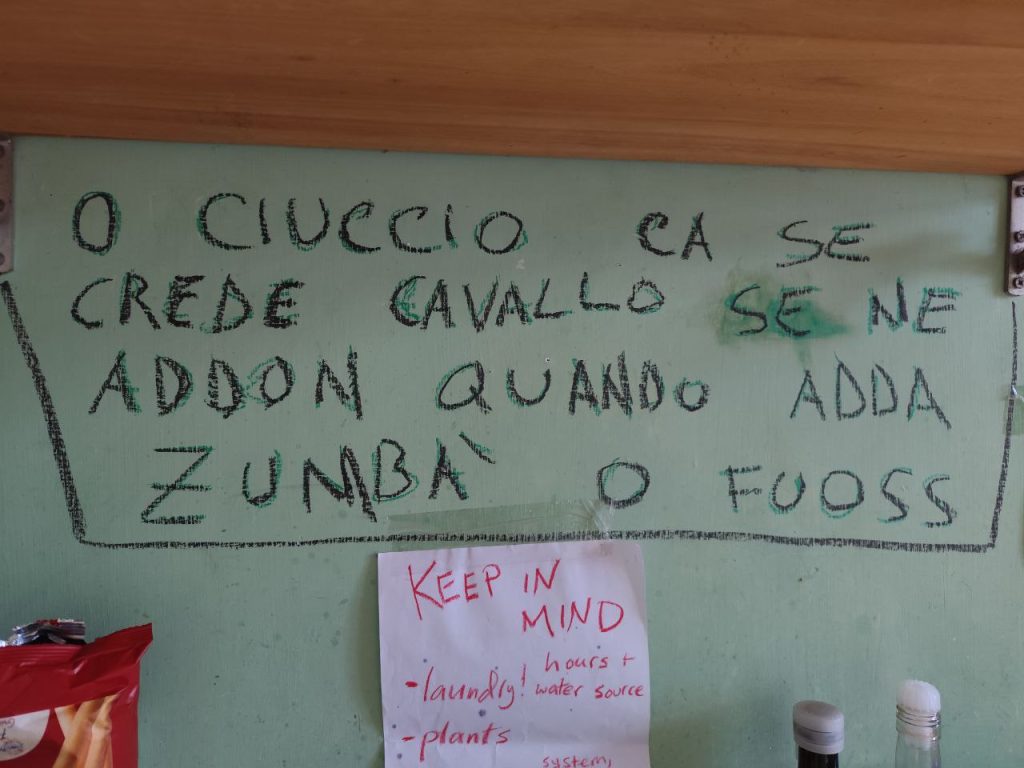 O CIUCCIO CA SE
CREDE CAVALLO SE NE
ADDON QUANDO ADDA
ZUMBA' O FUOSS
KEEP IN
MIND
hours +
-laundry! water source
-plants
system,